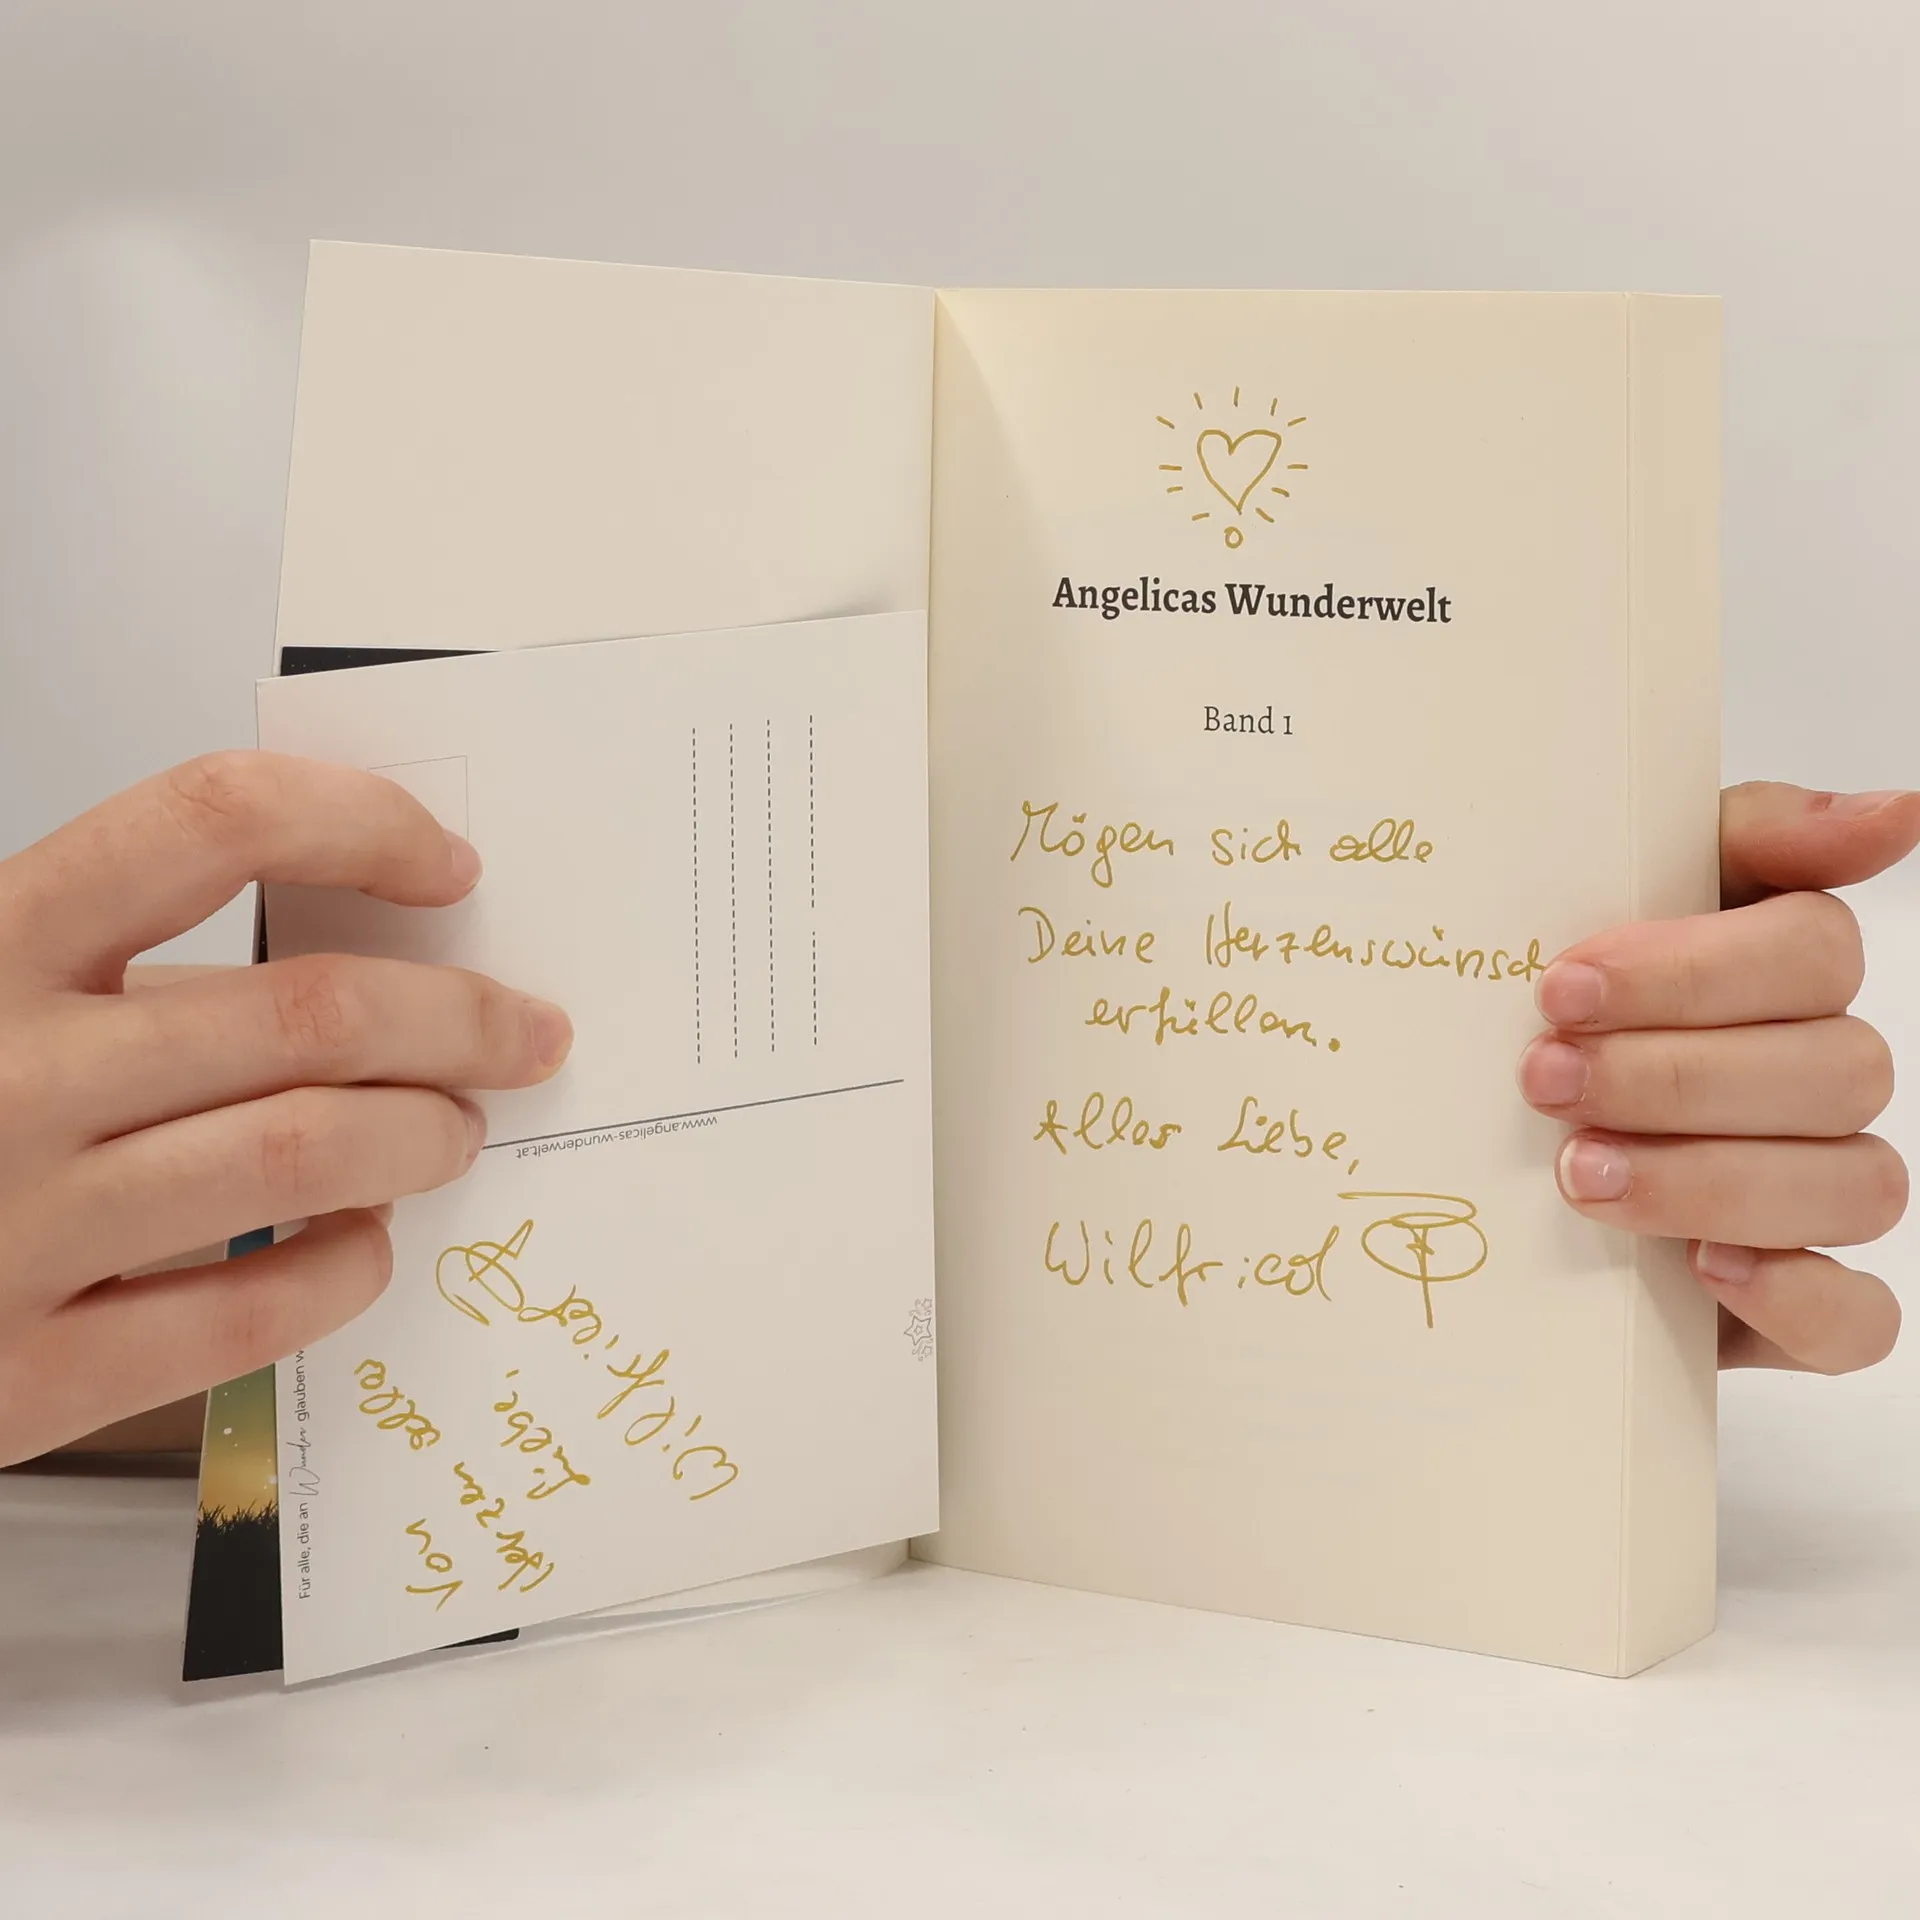 www.angelicas-wunderwelt.at
Von
Herzen alles
Liebe,
Für alle, die an Wunder glauben
Angelicas Wunderwelt
Band 1
Mögen sich alle
Deine Herzenswünsch
erfüllen.
Alles Liebe,
Wilfried